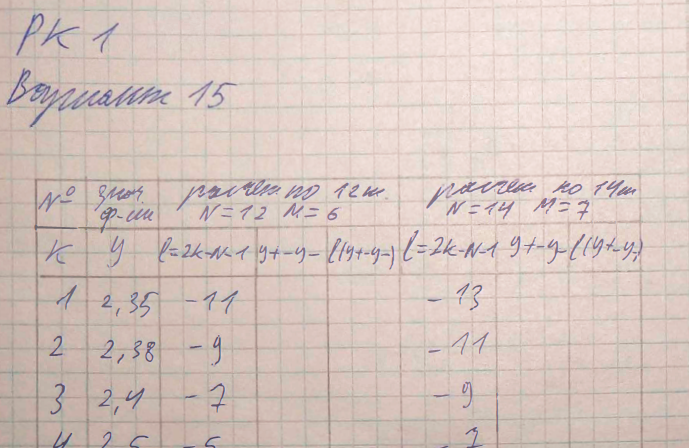 РК 1
Вариант 15
№ знач. расчет по 12 т. расчет по 14 т
ф-ии N=12 M=6 N=14 M=7
K y l=2k-N-1 y+-y- l(y+-y-) l=2k-N-1 y+-y- l(y+-y-)
1 2,35 -11 -13
2 2,38 -9 -11
3 2,4 -7 -9
4 2,5 -5 -7